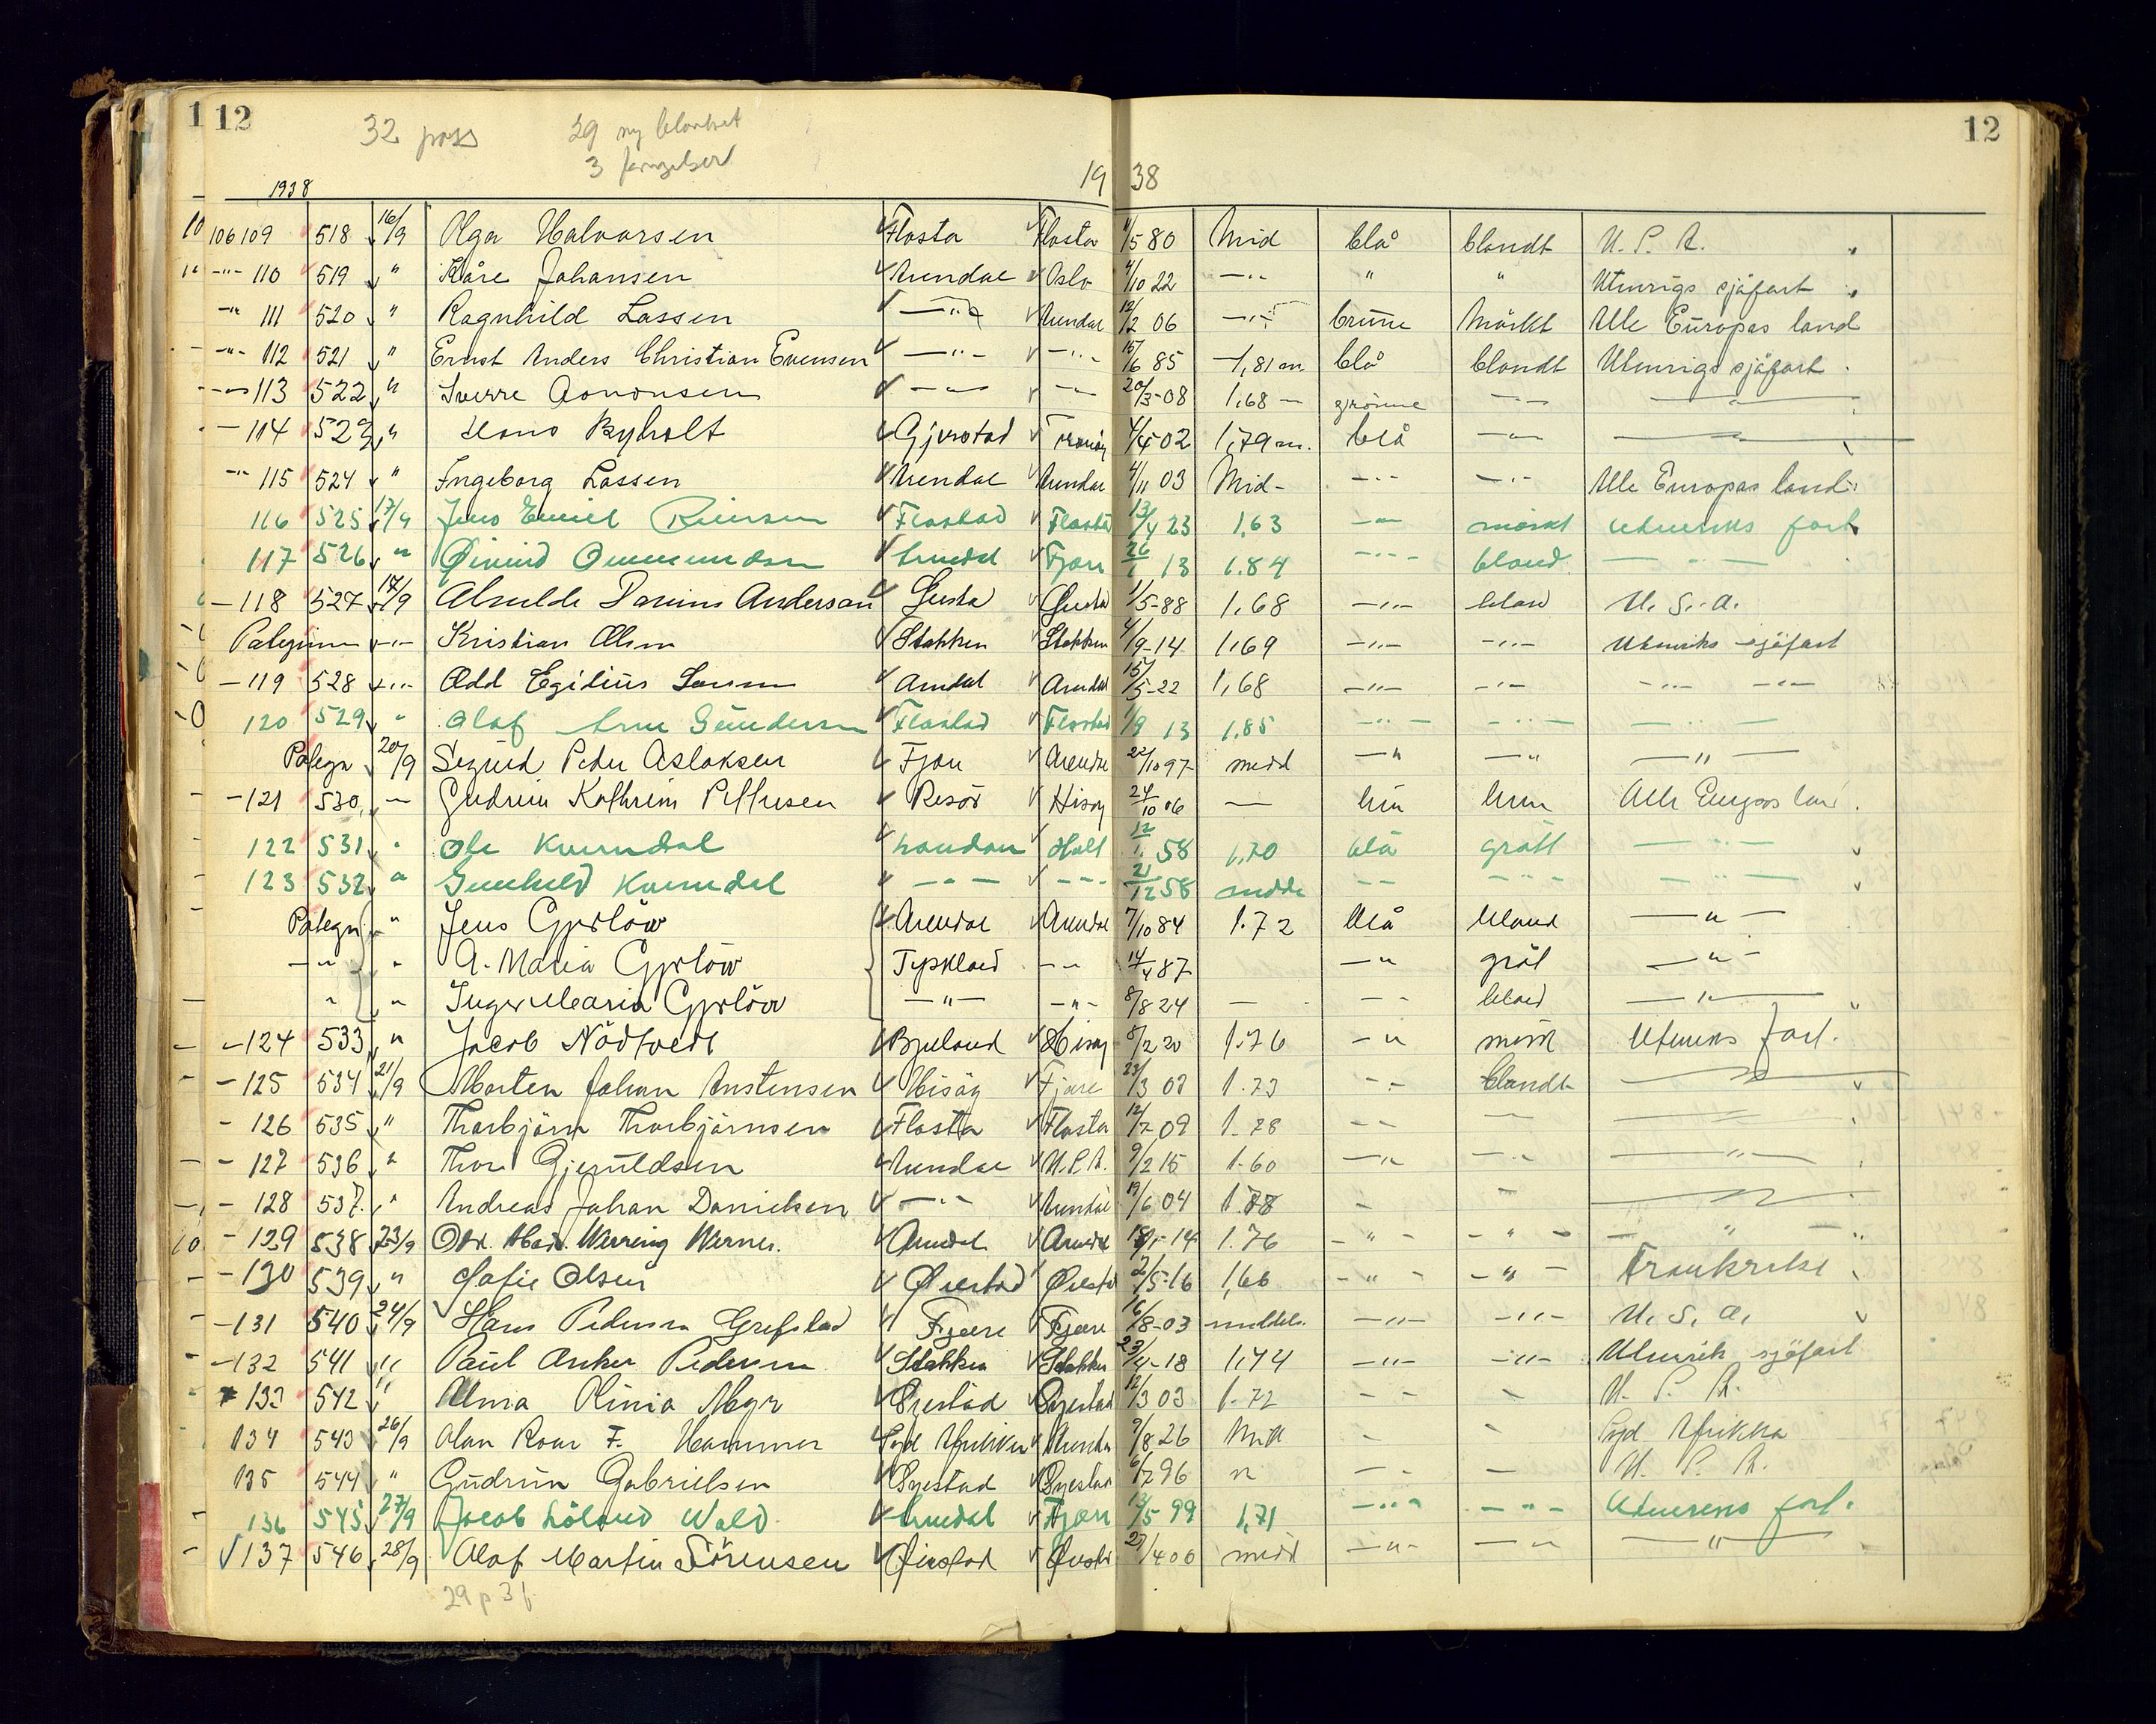 12 12
32 pass 29 ny blankat
3 fornyelser
1938 19 38
106109 518 16/9 Olga Halvorsen Flosta Flosta 11/5 80 Mid blå blondt U. S. A.
-"- 110 519 " Kåre Johansen Arendal Oslo 4/10 22 -"- " " Utenrigs sjøfart
-"- 111 520 " Ragnhild Lassen -"- Arendal 12/2 06 -"- brune Mörkt Alle Europas land
-"- 112 521 " Ernst Anders Christian Evensen -"- -"- 15/6 85 1,81 m blå blondt Utenrigs sjöfart
-"- 113 522 " Sverre Aanonsen -"- -"- 20/3-08 1.68 - grönne -"- -"-
- 114 523 " Hans Ryholt Gjerstad Tromöy 4/4 02 1,79 m. blå -"- -"-
-"- 115 524 " Ingeborg Lassen Arendal Arendal 4/11 03 Mid- -"- -"- Alle Europas land
116 525 17/9 Jens Emil Reiersen Flostad Flosta 13/4 23 1.63 -"- mörkt utenriks fart
117 526 " Øivind Ommundsen Arendal Fjære 26/1 13 1.84 -"- blond -"-
- 118 527 17/9 Andersen 1/5-88 1,68 -"- blond U. S. A.
Påtegning -"- Kristian Olsen Stokken Stokken 4/9-14 1,69 -"- -"- Utenriks sjöfart
- 119 528 -"- Odd Egilius Arendal Arendal 15/5-22 1,68 -"- -"- -"-
120 529 " Olaf Arne Gundersen Flostad Flostad 1/9 13 1.85 -"- -"- -"-
Påtegn 20/9 Sigurd Peder Aslaksen Fjære Arendal 22/10 97 midd -"- -"- -"-
- 121 530 - Gudrun Kathrine Pettersen Risör Hisøy 24/10 06 - brun brun Alle Europas land
122 531 " Ole Kverndal Landvik Holt 12/1 58 1.70 blå grått -"-
123 532 " Gunhild Kverndal -"- -"- 21/12 58 midde -"- -"- -"-
Påtegn " Jens Gjerlöw Arendal Arendal 7/10 84 1.72 blå blond -"-
-"- " A. Maria Gjerlöw Tyskland -"- 14/4 87 -"- grål -"-
" " Inger Maria Gjerlöw -"- -"- 8/8 24 - -"- blond -"-
- 124 533 " Jacob Nödtvedt Bjelland Hisøy 8/2 20 1.76 -"- mörk Utenriks fart.
- 125 534 21/9 Morten Johan Austensen Hisöy Fjære 23/3 07 1.73 -"- blondt -"-
- 126 535 " Thorbjörn Thorbjörnsen Flosta Flosta 12/7 09 1.78 -"- - -"-
- 127 536 " Thor Gjeruldsen Arendal U.S.A. 9/2 15 1.60 -"- -"- -"-
- 128 537. " Andreas Johan Danielsen -"- Arendal 19/6 04 1.78 - - -"-
- 129 538 23/9 Werring Werner. Arendal Arendal 18/1-14 1.76 -"- -"- -"-
- 130 539 " Sofie Olsen Øiestad Øiesta 2/5-16 1,66 -"- -"- Frankrike
- 131 540 24/9 Hans Pedersen Grefstad Fjære Fjære 16/8-03 middels -"- -"- U. S. A.
- 132 541 " Paul Anker Pedersen Stokken Stokken 23/4-18 1,74 -"- -"- Utenrik sjöfart
133 542 " Alma Olinia Myr Öyestad Öyestad 12/3 03 1.72 -"- - U. S. A.
134 543 26/9 Alan Roar F. Hammer Syd Afrikka Arendal 9/8 26 Mid - - Syd Afrikka
135 544 " Gudrun Gabrielsen Öyestad Öyestad 6/7 96 " -"- - U. S. A.
136 545 27/9 Jacob Löland Wold Arendal Fjære 13/5 99 1,71 -"- -"- Utenriks fart.
137 546 28/9 Olaf Martin Sörensen Øiestad Øiesta 27/4 06 midd -"- -"- -"-
29 p 3 f